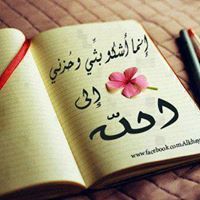 إنما أشكو بثّي وحُزني
إلى
الله
www.facebook.com